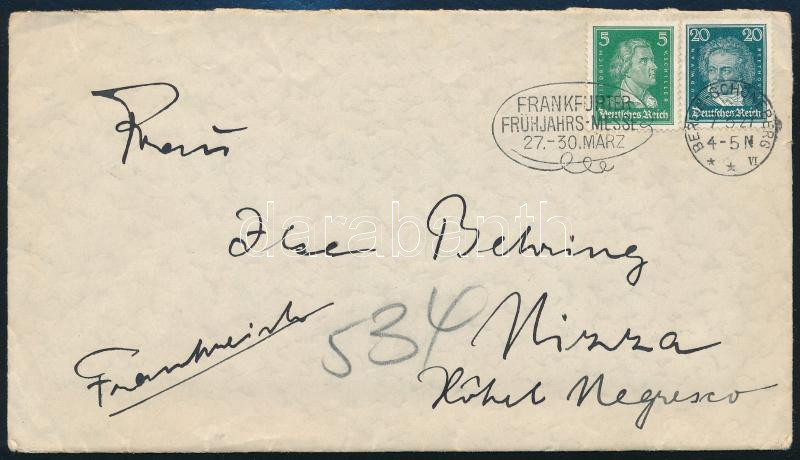 5 5
FRIEDRICH V. SCHILLER
Deutsches Reich
20 20
LUDW. VAN BEETHOVEN
Deutsches Reich
FRANKFURTER
FRÜHJAHRS-MESSE
27.-30. MÄRZ
BERLIN-SCHÖNEBERG
4-5 N
* *
VI
Frau
Ilse Behring
534
Nizza
Frankreich
Hôtel Negresco
darabanth